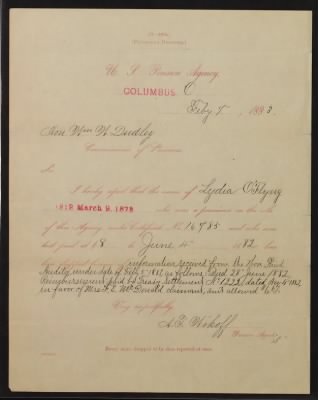 (Pensioner Dropped.)
U. S. Pension Agency,
COLUMBUS, O
Feby 5, 1883
Hon Wm W Dudley
Commissioner of Pensions
Sir:
I hereby report that the name of Lydia O'Flyng
1812 March 9, 1878 who was a pensioner on the rolls
of this Agency under Certificate No. 16985 and who was
last paid at $8 to June 4" 1882 has
been dropped because of information received from the Hon Third
Auditor under date of Feby 1883, as follows, Died 28" June 1882,
Reimbursement paid by Treasy Settlement No 1222 dated
in favor of Mrs. F. E. McDonald claimant, and allowed
Very respectfully
A. T. Wikoff
Pension Agent
Every name dropped to be thus reported at once.